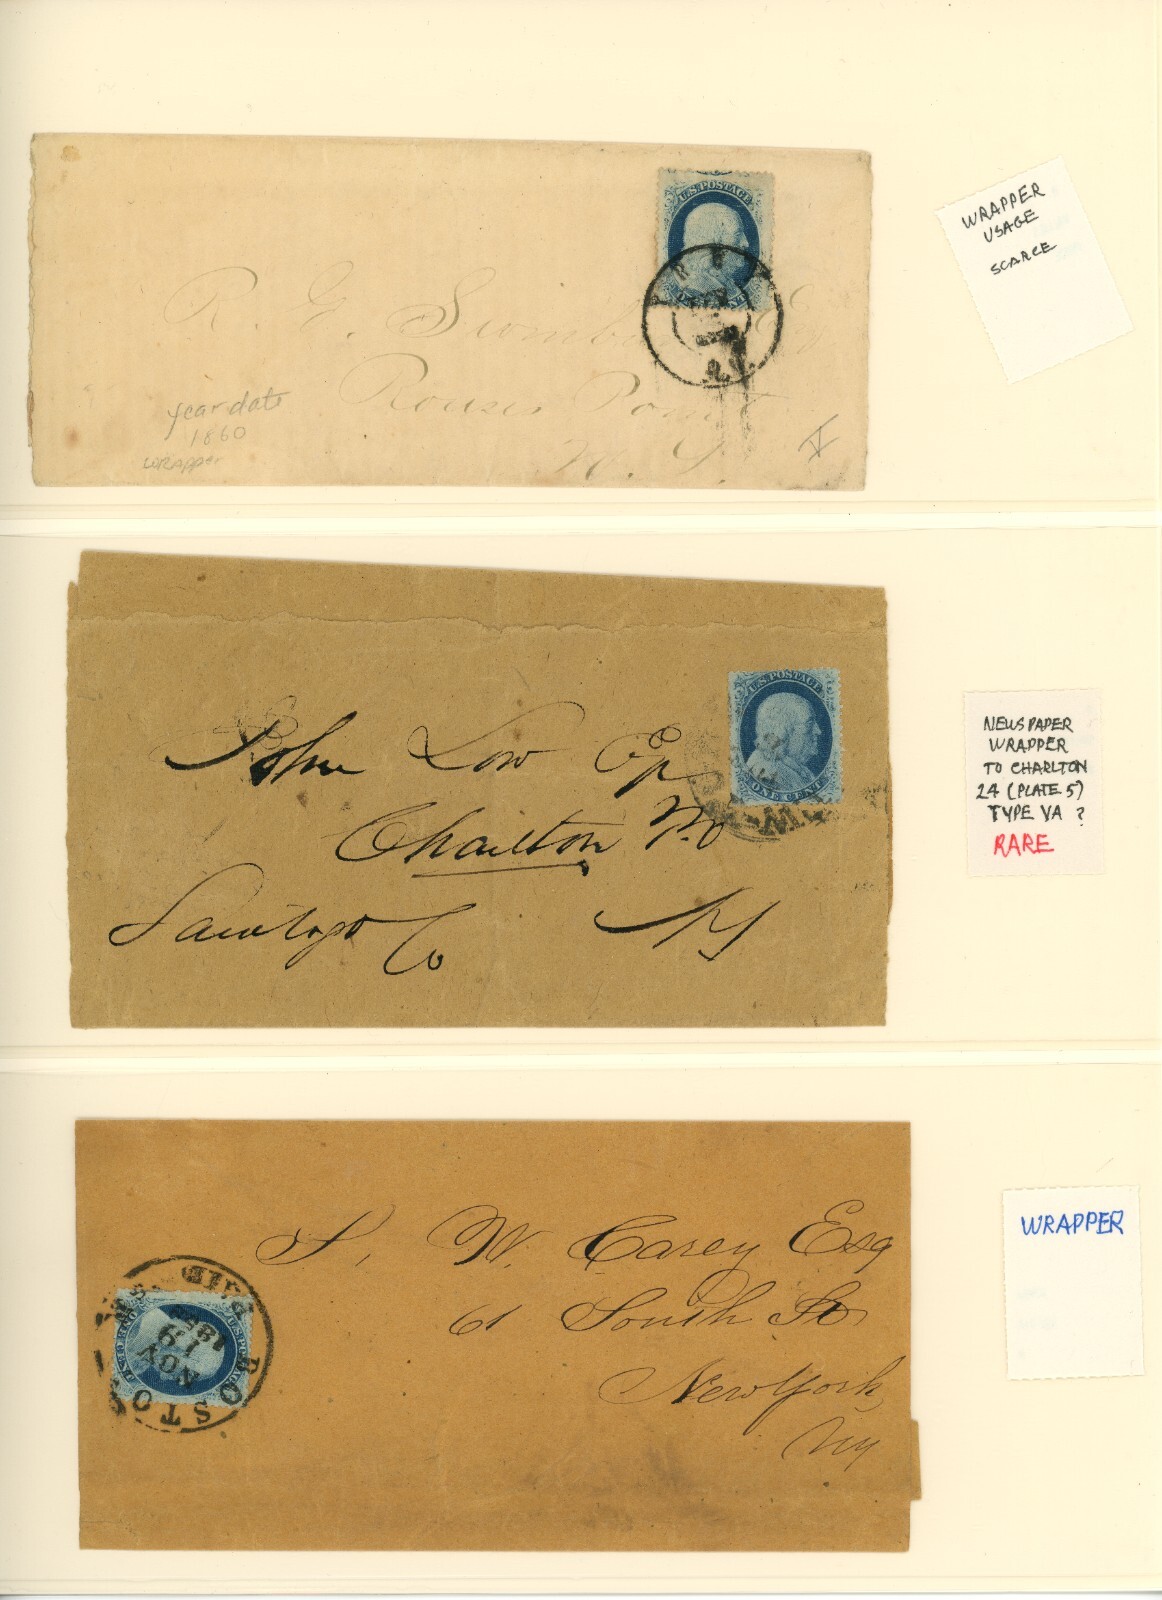 U.S. POSTAGE
WRAPPER
USAGE
SCARCE
R. G.
Rouses Point
N. Y.
year date
1860
wrapper
U.S. POSTAGE
ONE CENT
John Low Esq
Charlton P.O
Saratoga Co NY
NEWSPAPER
WRAPPER
TO CHARLTON
24 (PLATE 5)
TYPE VA ?
RARE
W. Carey Esq
61 South St
New York
NY
BOSTO
PAID
NOV
WRAPPER